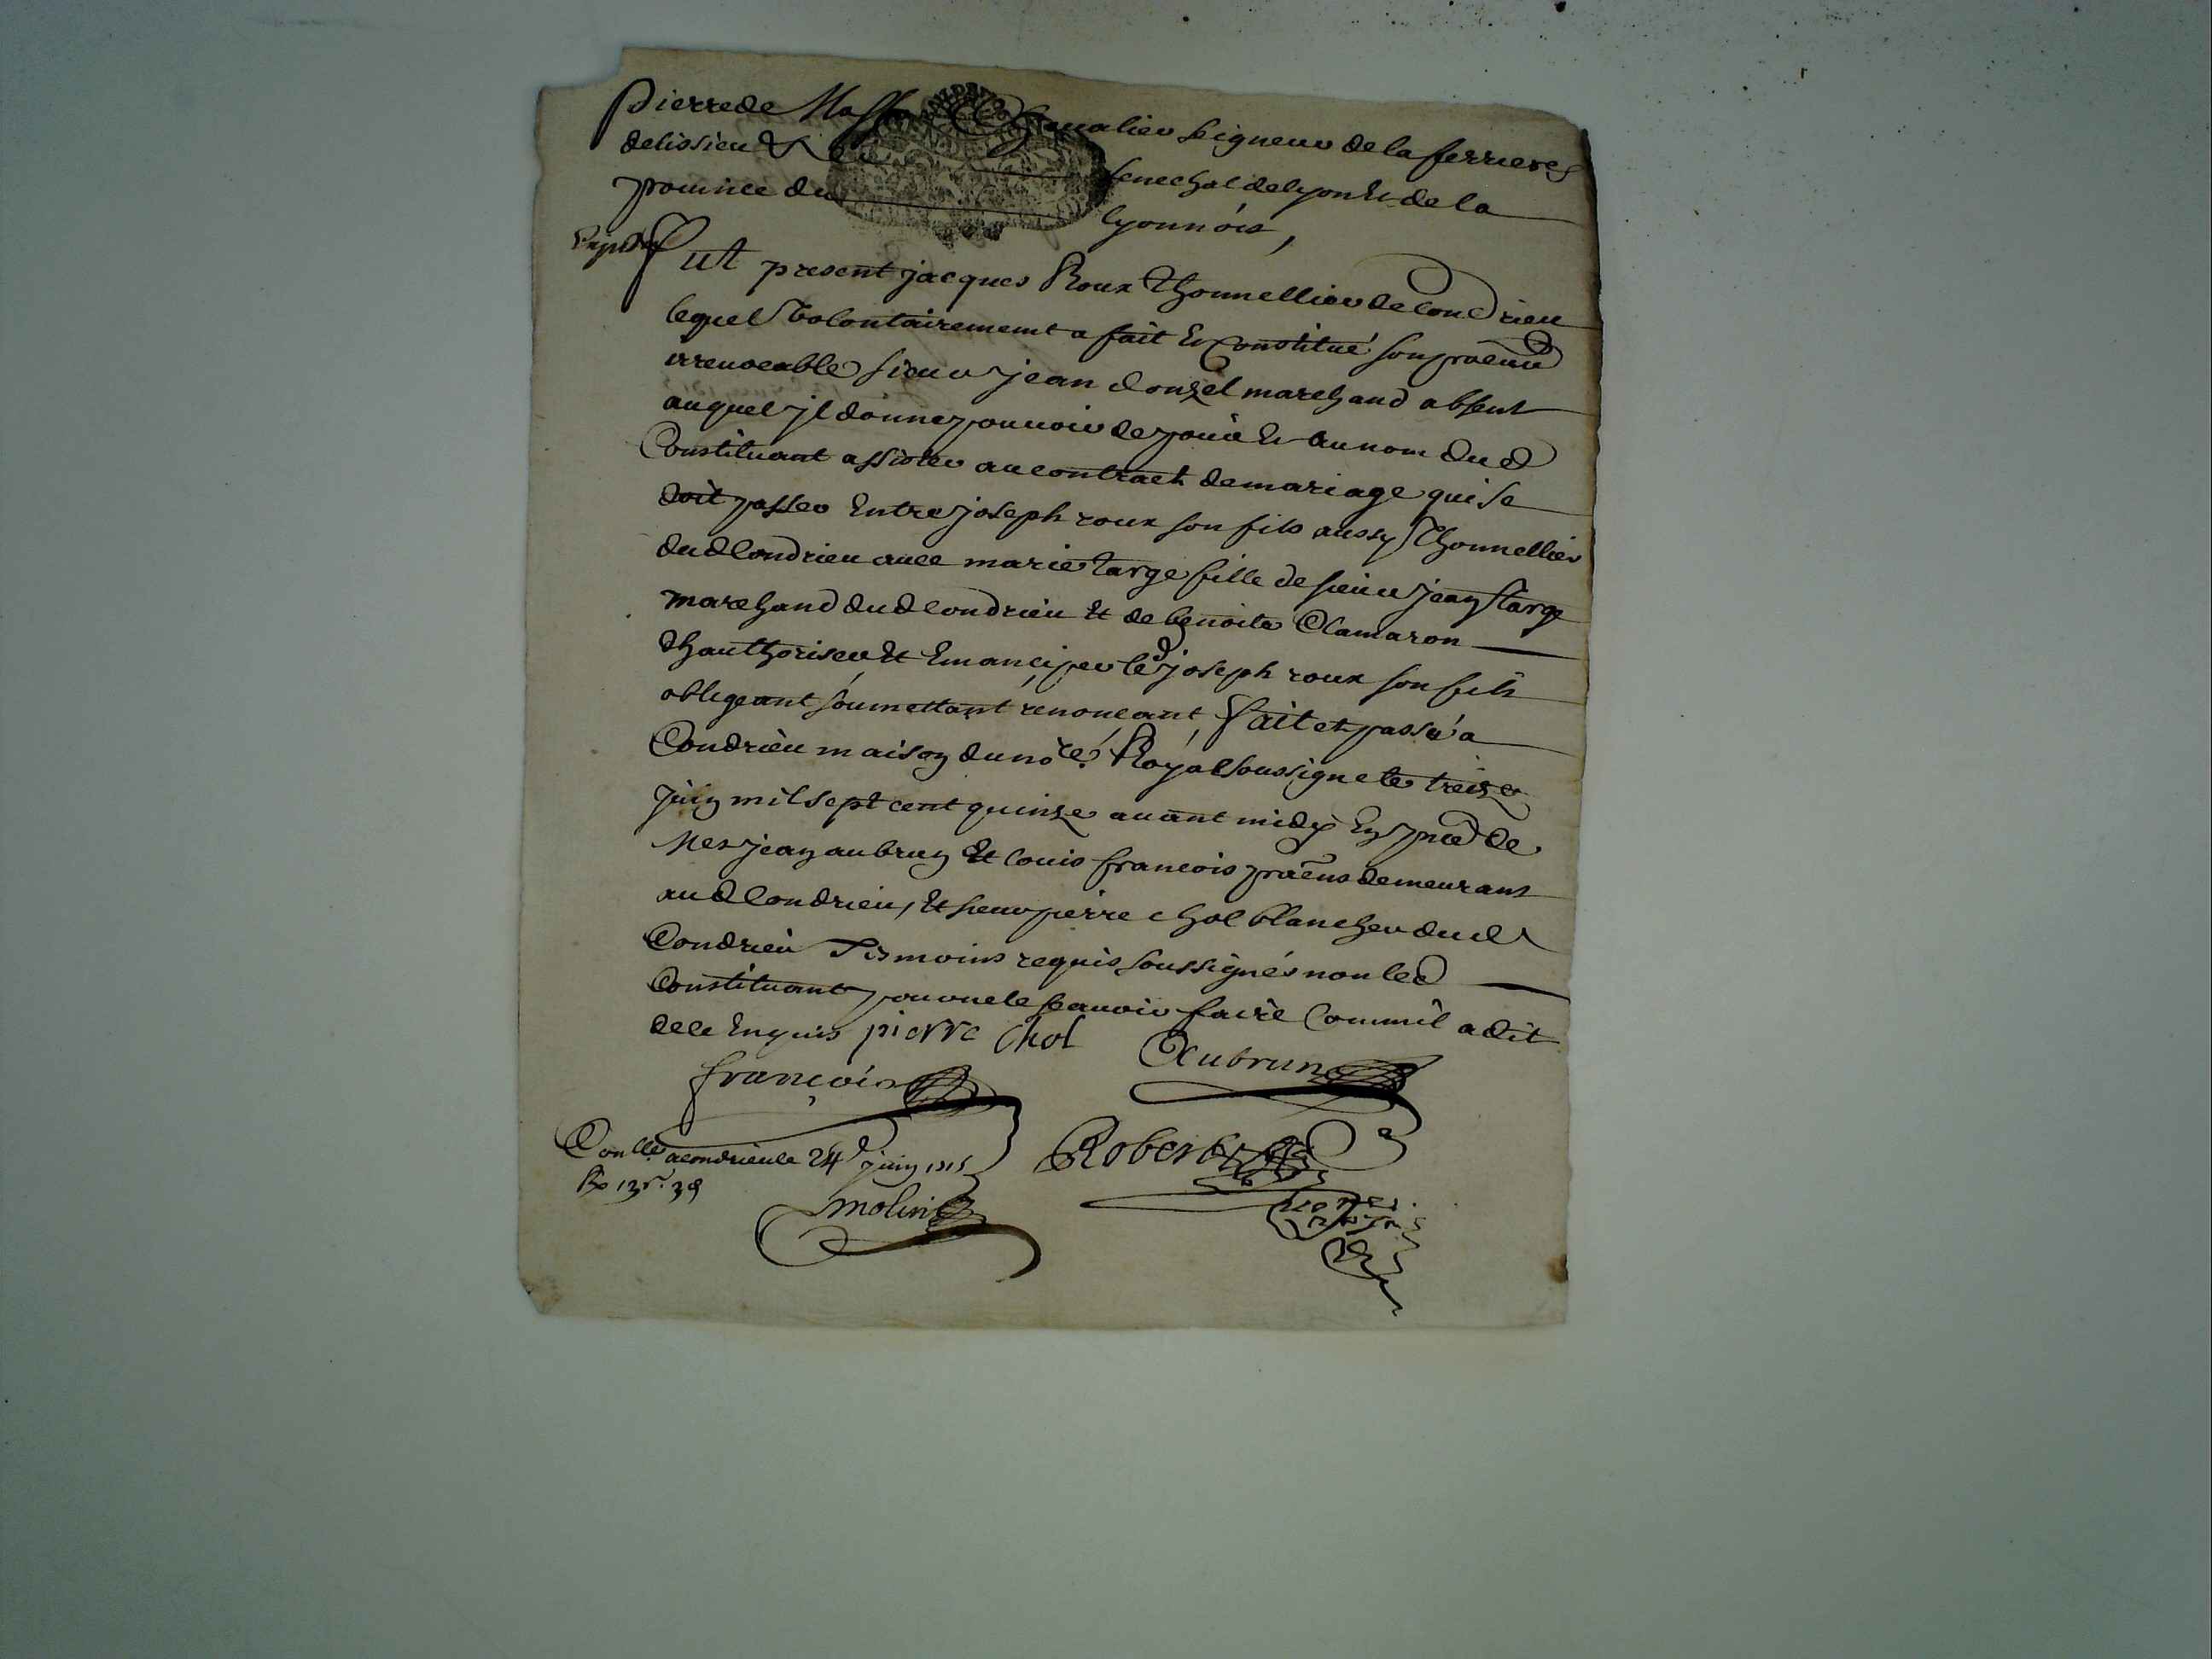 Pierre de Masso Chevalier seigneur de la ferriere
de lissieu & senechal de lyon Et de la
province du lyonnois,
Fut present jacques Roux thonnellier de Condrieu
lequel Volontairement a fait Et Constitué son
irrevocable sieur jean donzel marchand absent
auquel jl donne pouvoir de pour Et au nom dud
Constituant assister au contract de mariage qui se
doit passer Entre joseph roux son fils aussy thonnellier
dud Condrieu avec marie targe fille de sieur jean targe
marchand dud Condrieu Et de benoite Clamaron
thauthoriser Et Emanciper led joseph roux son fils
obligeant soumettant renonçant, fait et passé a
Condrieu maison du nore Royal soussigne le treize
juin mil sept cent quinze avant midy En pnce de
Mes jean aubrun Et louis françois demeurans
aud Condrieu, Et sieur pierre chol blancher dud
Condrieu Tesmoins requis soussignés non led
Constituant pour ne le sçavoir faire Comm'il a dit
de ce Enquis pierre Chol
Aubrun
françois
Robert
Conllé a condrieu le 24e juin 1715
Rx 13s. 3d
molin